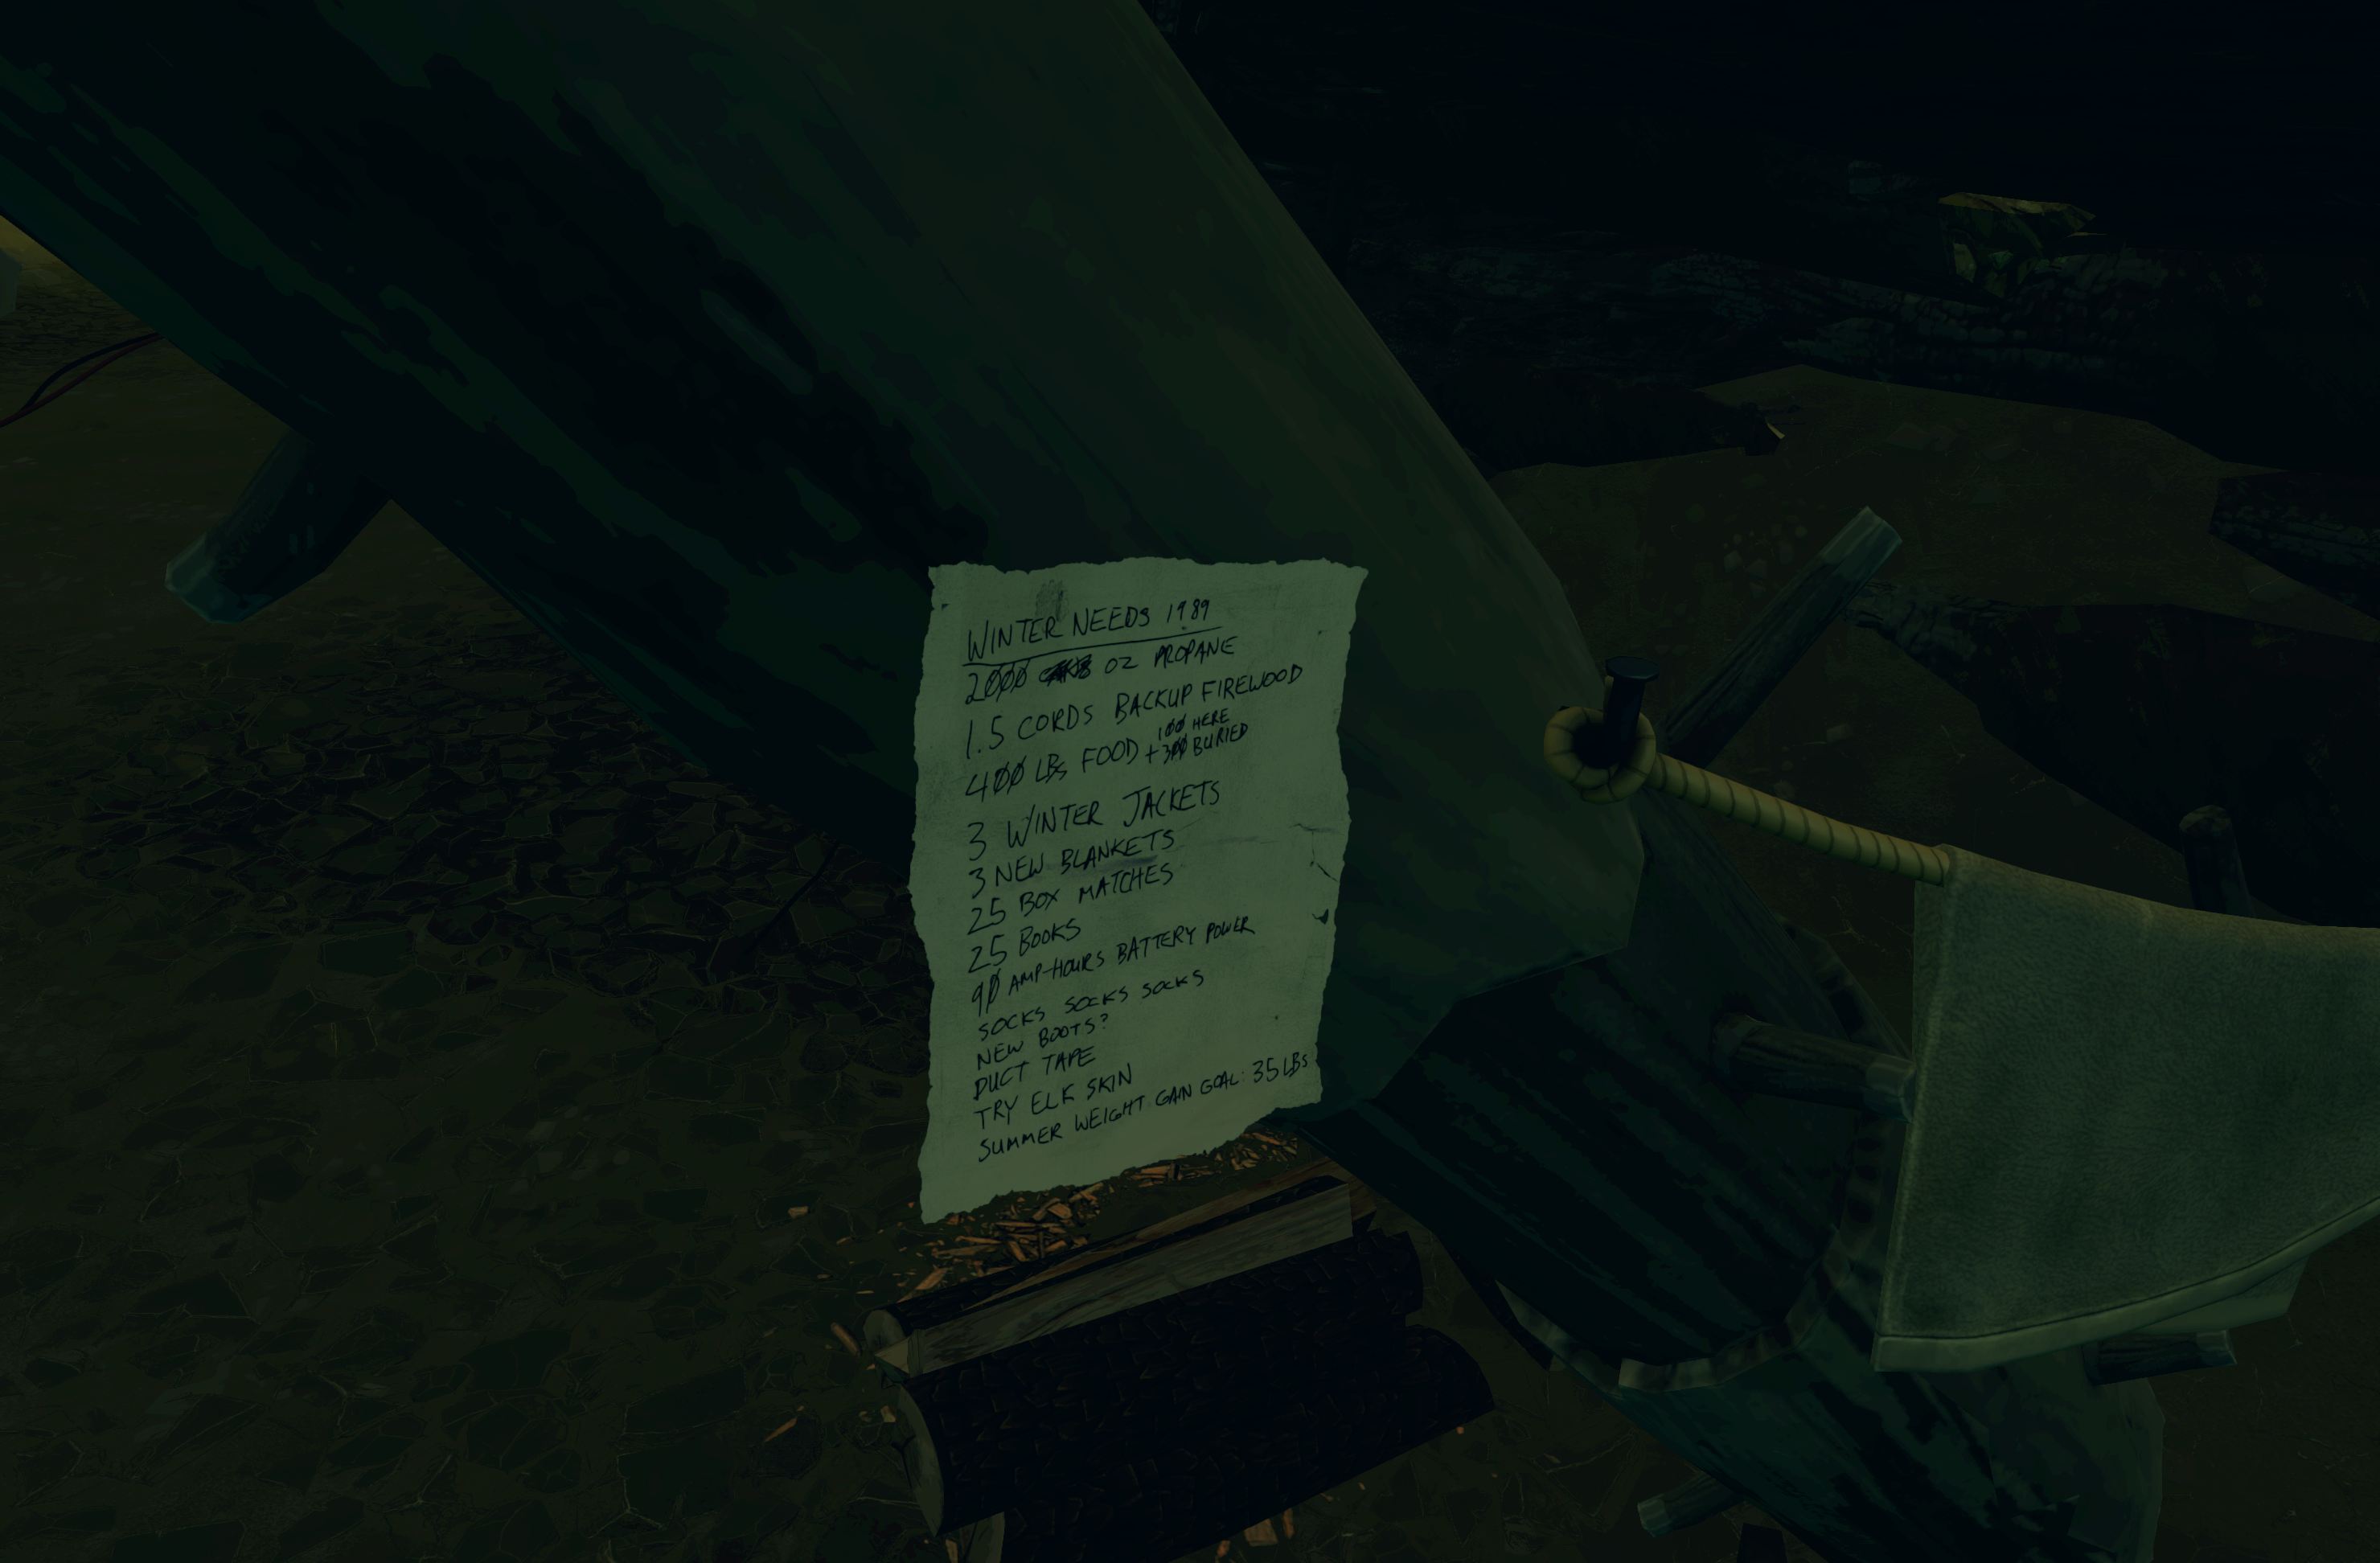 WINTER NEEDS 1989
2000 OZ PROPANE
1.5 CORDS BACKUP FIREWOOD
400 LBS FOOD 100 HERE
+300 BURIED
3 WINTER JACKETS
3 NEW BLANKETS
25 BOX MATCHES
25 BOOKS
90 AMP-HOURS BATTERY POWER
SOCKS SOCKS SOCKS
NEW BOOTS?
DUCT TAPE
TRY ELK SKIN
SUMMER WEIGHT GAIN GOAL: 35 LBS